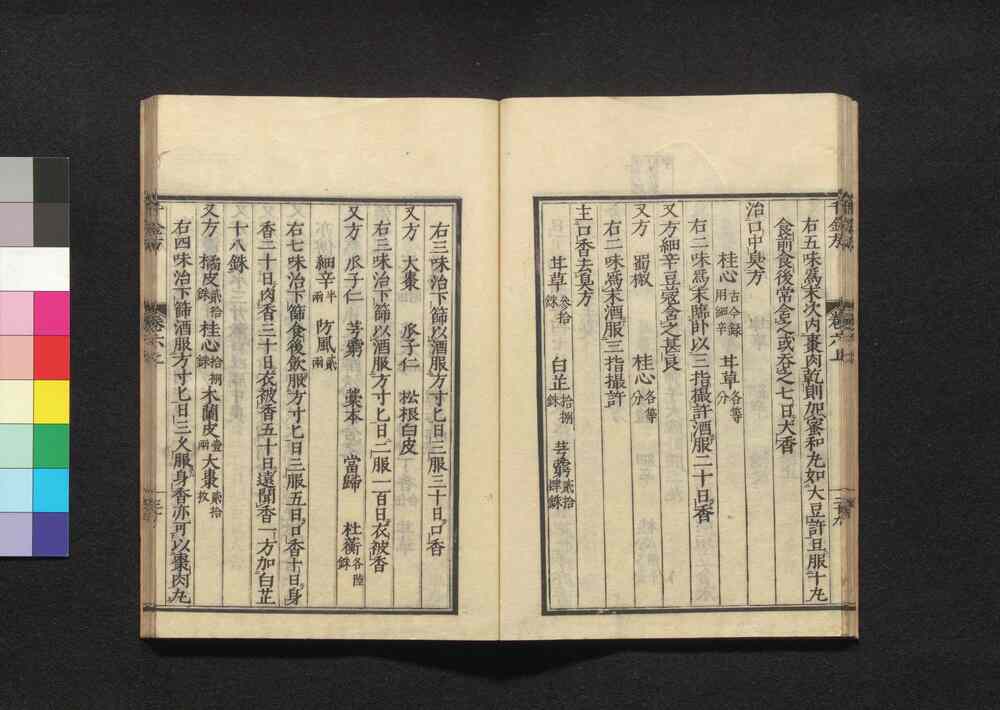 右五味爲末次內棗肉乾則加蜜和丸如大豆許旦服十丸
食前食後常含之或吞之七日大香
治口中臭方
桂心古今錄用細辛 甘草各等分
右二味爲末臨臥以三指撮許酒服二十日香
又方細辛豆寇含之甚良
又方 蜀椒 桂心各等分
右二味爲末酒服三指撮許
主口香去臭方
甘草叁拾銖 白芷拾捌銖 芎藭貳拾肆銖
右三味治下篩以酒服方寸匕日三服三十日口香
又方 大棗 瓜子仁 松根白皮
右三味治下篩以酒服方寸匕日二服一百日衣被香
又方 瓜子仁 芎藭 藁本 當歸 杜蘅各陸銖
細辛半兩 防風貳兩
右七味治下篩食後飲服方寸匕日三服五日口香十日身
香二十日肉香三十日衣被香五十日遠聞香一方加白芷
十八銖
又方 橘皮貳拾銖 桂心拾捌銖 木蘭皮壹兩 大棗貳拾枚
右四味治下篩酒服方寸匕日三久服身香亦可以棗肉丸
千金方
卷六上